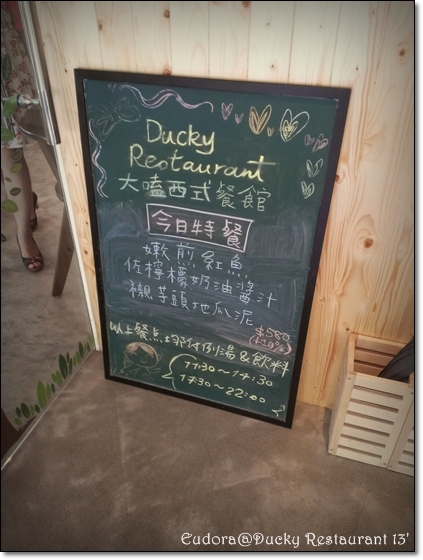 Ducky
Restaurant
大嗑西式餐館
今日特餐
嫩煎紅魚
佐檸檬奶油醬汁
襯芋頭地瓜泥
$580
(+10%)
以上餐点均附例湯&飲料
11:30～14:30
17:30～22:00
Eudora@Ducky Restaurant 13'